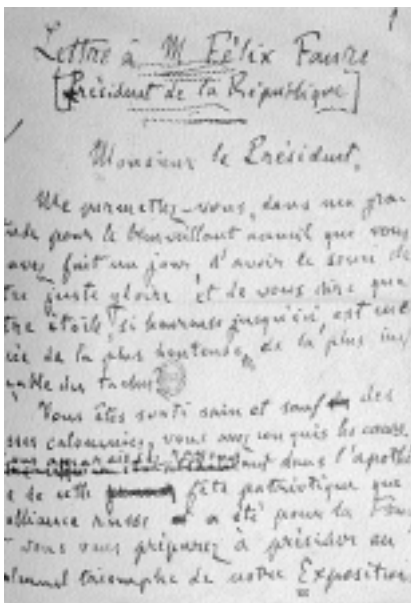 1
Lettre à M Félix Faure
[Président de la République]
Monsieur le Président,
Me permettez-vous, dans ma gra-
tude pour le bienveillant accueil que vous
avez fait un jour, d'avoir le souci de
tre juste gloire et de vous dire que
tre étoile, si heureuse jusqu'ici, est
de la plus honteuse, de la plus inef
able des taches
Vous êtes sorti sain et sauf des
ses calomnies, vous avez conquis les cœurs.
dans l'apothé
e de cette fête patriotique que
alliance russe a été pour la Fran
vous vous préparez à présider au
lennel triomphe de notre Exposition